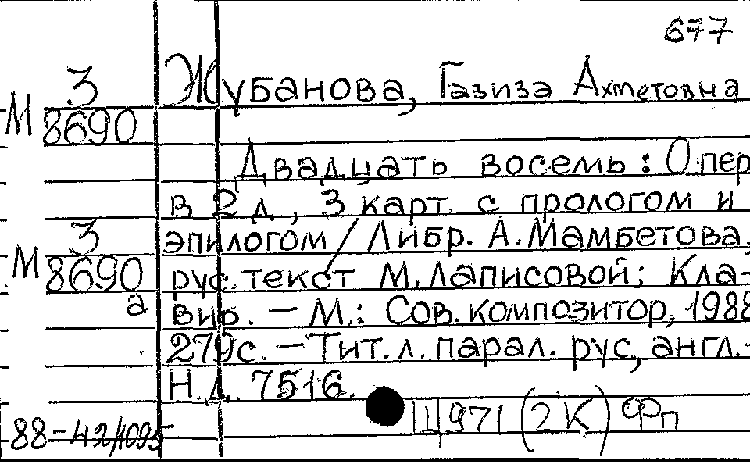 677
Жубанова, Газиза Ахметовна
М 3
8690
Двадцать восемь: Опер
в 2 д., 3 карт. с прологом и
эпилогом / Либр. А. Мамбетова,
М 3
8690
а
рус. текст М. Лаписовой; Кла-
вир. — М.: Сов. композитор, 1988
279с. — Тит. л. парал. рус, англ.-
Н.д. 7516.
Щ971 (2К) Фп